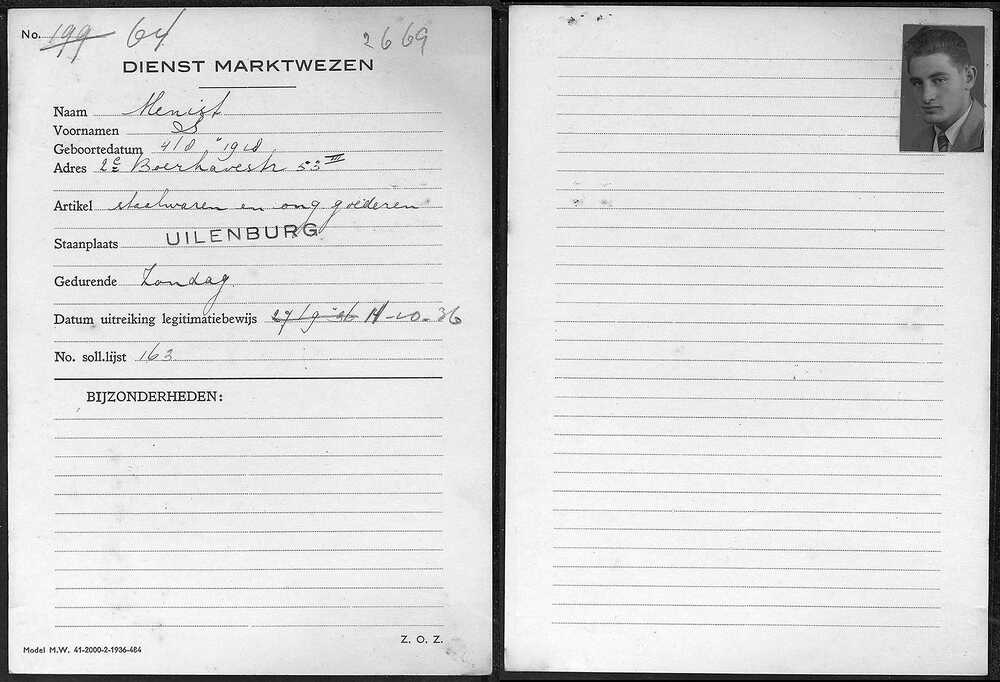 No. 199 64 2669
DIENST MARKTWEZEN
Naam Menist
Voornamen S
Geboortedatum 4/8 " 1918
Adres 2e Boerhavestr 53 III
Artikel staalwaren en ong goederen
Staanplaats UILENBURG
Gedurende Zondag
Datum uitreiking legitimatiebewijs 27/9-36 11-10-36
No. soll.lijst 163
BIJZONDERHEDEN:
Z. O. Z.
Model M.W. 41-2000-2-1936-484